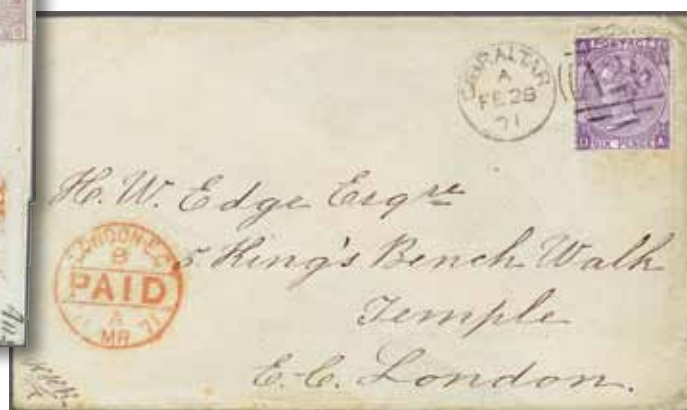 GIBRALTAR
A
FE 28
71
POSTAGE
SIX PENCE
H. W. Edge Esqre
5 King's Bench Walk
Temple
E.C. London.
LONDON E.C
PAID
A
MR 71